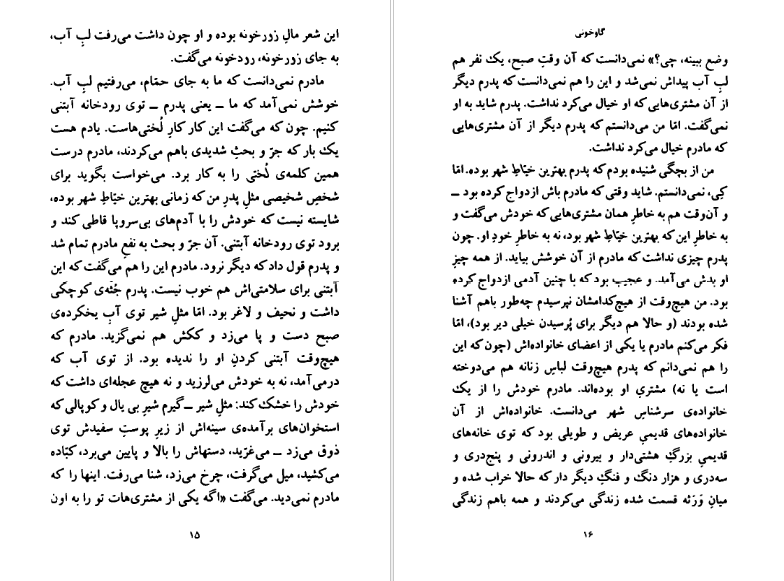 این شعر مالِ زورخونه بوده و او چون داشت می‌رفت لبِ آب،
به جای زورخونه، رودخونه می‌گفت.
مادرم نمی‌دانست که ما به جای حمّام، می‌رفتیم لبِ آب.
خوشش نمی‌آمد که ما ــ یعنی پدرم ــ توی رودخانه آبتنی
کنیم. چون که می‌گفت این کار کارِ لُختی‌هاست. یادم هست
یک بار که جرّ و بحثِ شدیدی باهم می‌کردند، مادرم درست
همین کلمه‌ی لُختی را به کار برد. می‌خواست بگوید برای
شخصِ شخیصی مثلِ پدرِ من که زمانی بهترین خیّاطِ شهر بوده،
شایسته نیست که خودش را با آدم‌های بی‌سروپا قاطی کند و
برود توی رودخانه آبتنی. آن جرّ و بحث به نفعِ مادرم تمام شد
و پدرم قول داد که دیگر نرود. مادرم این را هم می‌گفت که این
آبتنی برای سلامتی‌اش هم خوب نیست. پدرم جُثّه‌ی کوچکی
داشت و نحیف و لاغر بود. امّا مثلِ شیر توی آبِ یخکرده‌ی
صبح دست و پا می‌زد و ککش هم نمی‌گزید. مادرم که
هیچ‌وقت آبتنی کردنِ او را ندیده بود. از توی آب که
درمی‌آمد، نه به خودش می‌لرزید و نه هیچ عجله‌ای داشت که
خودش را خشک کند: مثلِ شیر ــ گیرم شیرِ بی یال و کوپالی که
استخوان‌های برآمده‌ی سینه‌اش از زیرِ پوستِ سفیدش توی
ذوق می‌زد ــ می‌غرّید، دستهاش را بالا و پایین می‌برد، کبّاده
می‌کشید، میل می‌گرفت، چرخ می‌زد، شنا می‌رفت. اینها را که
مادرم نمی‌دید. می‌گفت «اگه یکی از مشتری‌هات تو را به اون
۱۵
گاوخونی
وضع ببینه، چی؟» نمی‌دانست که آن وقتِ صبح، یک نفر هم
لبِ آب پیداش نمی‌شد و این را هم نمی‌دانست که پدرم دیگر
از آن مشتری‌هایی که او خیال می‌کرد نداشت. پدرم شاید به او
نمی‌گفت. امّا من می‌دانستم که پدرم دیگر از آن مشتری‌هایی
که مادرم خیال می‌کرد نداشت.
من از بچگی شنیده بودم که پدرم بهترین خیّاطِ شهر بوده. امّا
کِی، نمی‌دانستم. شاید وقتی که مادرم باش ازدواج کرده بود ــ
و آن‌وقت هم به خاطرِ همان مشتری‌هایی که خودش می‌گفت و
به خاطرِ این که بهترین خیّاطِ شهر بود، نه به خاطرِ خودِ او. چون
پدرم چیزی نداشت که مادرم از آن خوشش بیاید. از همه چیزِ
او بدش می‌آمد. و عجیب بود که با چنین آدمی ازدواج کرده
بود. من هیچ‌وقت از هیچ‌کدامشان نپرسیدم چه‌طور باهم آشنا
شده بودند (و حالا هم دیگر برای پُرسیدن خیلی دیر بود)، امّا
فکر می‌کنم مادرم یا یکی از اعضای خانواده‌اش (چون که این
را هم نمی‌دانم که پدرم هیچ‌وقت لباسِ زنانه هم می‌دوخته
است یا نه) مشتریِ او بوده‌اند. مادرم خودش را از یک
خانواده‌ی سرشناسِ شهر می‌دانست. خانواده‌اش از آن
خانواده‌های قدیمیِ عریض و طویلی بود که توی خانه‌های
قدیمیِ بزرگِ هشتی‌دار و بیرونی و اندرونی و پنج‌دری و
سه‌دری و هزار دنگ و فنگِ دیگر دار که حالا خراب شده و
میانِ وَرَثه قسمت شده زندگی می‌کردند و همه باهم زندگی
۱۶